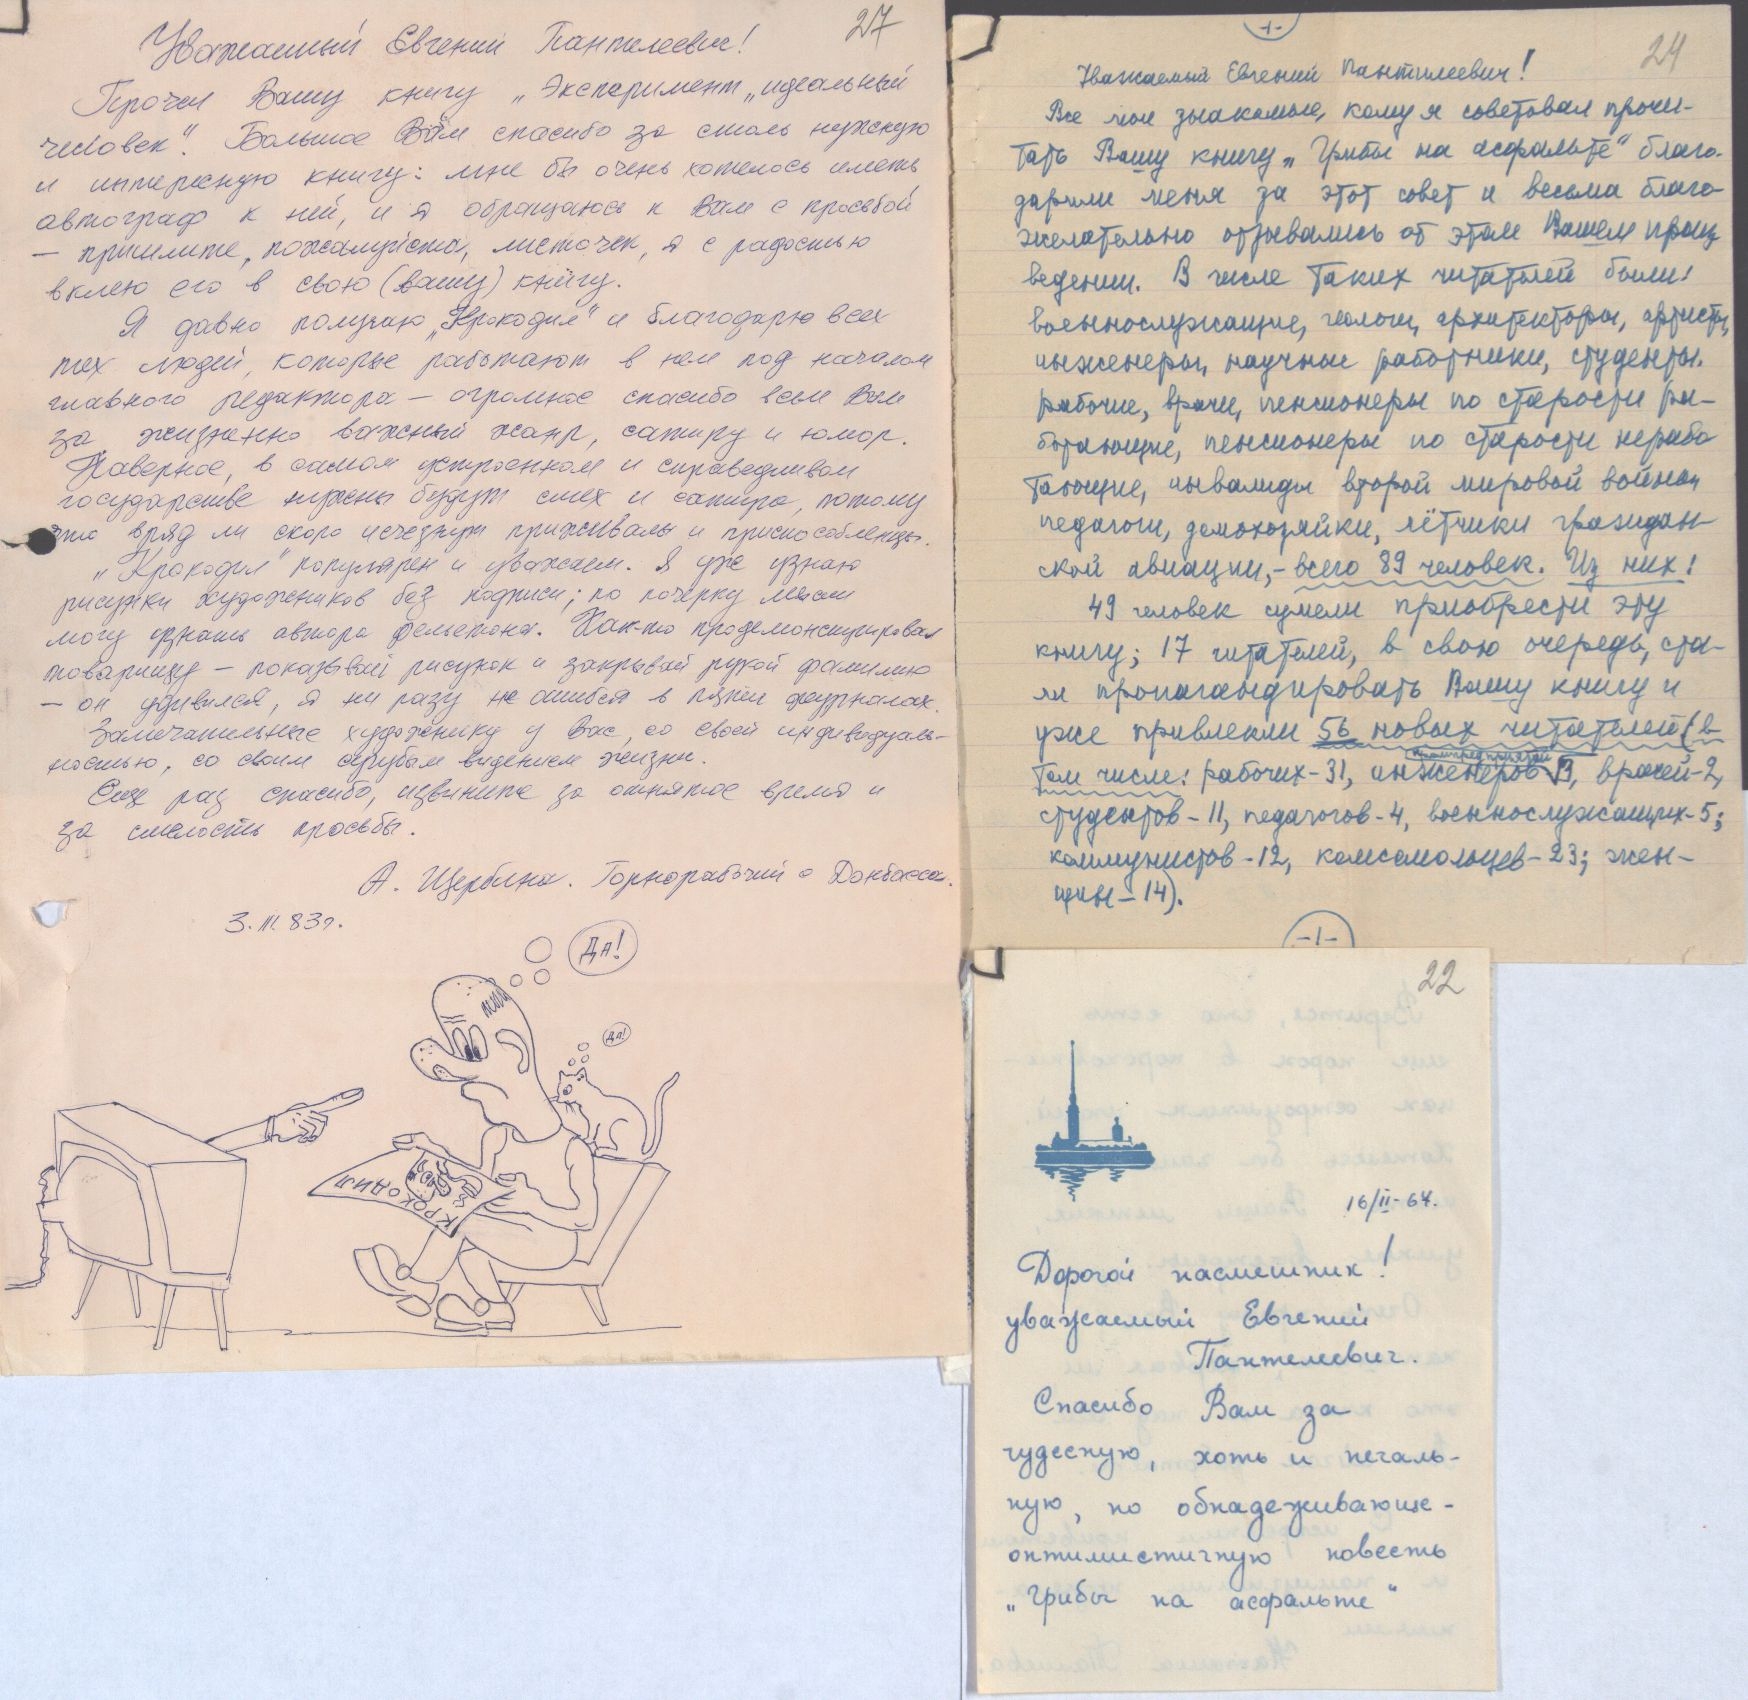 27
Уважаемый Евгений Пантелеевич!
Прочел Вашу книгу „Эксперимент „идеальный
человек“. Большое Вам спасибо за столь нужную
и интересную книгу: мне бы очень хотелось иметь
автограф к ней, и я обращаюсь к Вам с просьбой
— пришлите, пожалуйста, листочек, я с радостью
вклею его в свою (вашу) книгу.
Я давно получаю „Крокодил“ и благодарю всех
тех людей, которые работают в нем под началом
главного редактора — огромное спасибо всем Вам
за жизненно важный жанр, сатиру и юмор.
Наверное, в самом устроенном и справедливом
государстве нужны будут смех и сатира, потому
что вряд ли скоро исчезнут приживалы и приспособленцы.
„Крокодил“ популярен и уважаем. Я уже узнаю
рисунки художников без подписи; по почерку мысли
могу узнать автора фельетона. Как-то продемонстрировал
товарищу — показывай рисунок и закрывай рукой фамилию
— он удивился, я ни разу не ошибся в пяти журналах.
Замечательные художники у Вас, со своей индивидуаль-
ностью, со своим сугубым видением жизни.
Еще раз спасибо, извините за отнятое время и
за смелость просьбы.
А. Щербина. Горнорабочий с Донбасса.
3.III.83г.
Да!
Да!
КРОКОДИЛ
-1-
24
Уважаемый Евгений Пантилеевич!
Все мои знакомые, кому я советовал прочи-
тать Вашу книгу „Грибы на асфальте“ благо-
дарили меня за этот совет и весьма благо
желательно отзывались об этом Вашем произ
ведении. В числе таких читателей были:
военнослужащие, геологи, архитекторы, артисты,
инженеры, научные работники, студенты,
рабочие, врачи, пенсионеры по старости ра-
ботающие, пенсионеры по старости нерабо
тающие, инвалиды второй мировой войны,
педагоги, домохозяйки, лётчики граждан-
ской авиации,- всего 89 человек. Из них:
49 человек сумели приобрести эту
книгу; 17 читателей, в свою очередь, ста-
ли пропагандировать Вашу книгу и
уже привлекли 56 новых читателей (в
том числе: рабочих-31, инженеров 3, врачей-2,
студентов-11, педагогов-4, военнослужащих-5;
коммунистов-12, комсомольцев-23; жен-
щин-14).
-1-
22
16/II-64.
Дорогой насмешник!
уважаемый Евгений
Пантелеевич.
Спасибо Вам за
чудесную, хоть и печаль-
ную, но обнадеживающе-
оптимистичную повесть
„Грибы на асфальте“